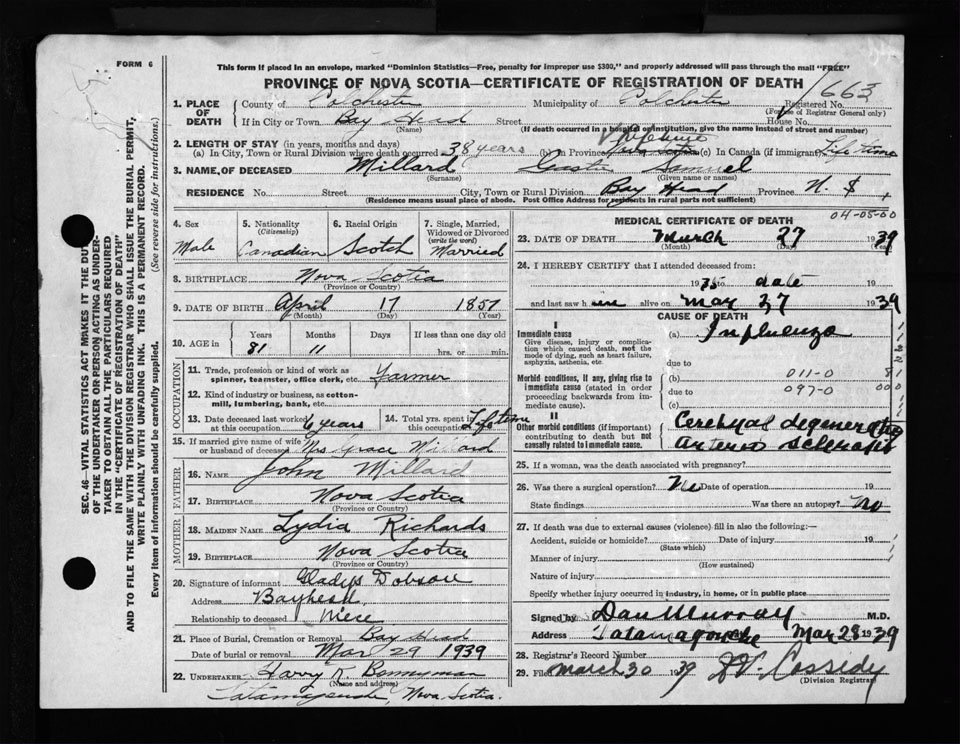 FORM 6
This form if placed in an envelope, marked "Dominion Statistics—Free, penalty for improper use $300," and properly addressed will pass through the mail "FREE"
PROVINCE OF NOVA SCOTIA—CERTIFICATE OF REGISTRATION OF DEATH
663
SEC. 46—VITAL STATISTICS ACT MAKES IT THE DUTY
OF THE UNDERTAKER OR PERSON ACTING AS UNDER-
TAKER TO OBTAIN ALL THE PARTICULARS REQUIRED
IN THE "CERTIFICATE OF REGISTRATION OF DEATH"
AND TO FILE THE SAME WITH THE DIVISION REGISTRAR WHO SHALL ISSUE THE BURIAL PERMIT,
WRITE PLAINLY WITH UNFADING INK. THIS IS A PERMANENT RECORD.
Every item of information should be carefully supplied. (See reverse side for instructions.)
1. PLACE OF DEATH
County of Colchester Municipality of Colchester Registered No.
(For use of Registrar General only)
If in City or Town Bay Head Street House No.
(Name) (If death occurred in a hospital or institution, give the name instead of street and number)
2. LENGTH OF STAY (in years, months and days) Lifetime
(a) In City, Town or Rural Division where death occurred 38 years (b) In Province (c) In Canada (if immigrant) Life time
3. NAME OF DECEASED Millard
(Surname) (Given name or names)
RESIDENCE No. Street. City, Town or Rural Division Bay Head Province N. S.
(Residence means usual place of abode. Post Office Address for residents in rural parts not sufficient)
4. Sex Male
5. Nationality (Citizenship) Canadian
6. Racial Origin Scotch
7. Single, Married, Widowed or Divorced (write the word) Married
8. BIRTHPLACE Nova Scotia
(Province or Country)
9. DATE OF BIRTH April 17 1857
(Month) (Day) (Year)
10. AGE in Years Months Days If less than one day old
81 11 hrs. or min.
OCCUPATION
11. Trade, profession or kind of work as spinner, teamster, office clerk, etc. Farmer
12. Kind of industry or business, as cotton-mill, lumbering, bank, etc.
13. Date deceased last worked at this occupation 6 years
14. Total yrs. spent in this occupation Lifetime
15. If married give name of wife or husband of deceased Mrs Grace Millard
FATHER
16. NAME John Millard
17. BIRTHPLACE Nova Scotia
(Province or Country)
MOTHER
18. MAIDEN NAME Lydia Richards
19. BIRTHPLACE Nova Scotia
(Province or Country)
20. Signature of informant Gladys Dobson
Address Bayhead
Relationship to deceased Niece
21. Place of Burial, Cremation or Removal Bay Head
Date of burial or removal Mar 29 1939
22. UNDERTAKER Harry K. Bonnyman
(Name and address)
Tatamagouche, Nova Scotia.
MEDICAL CERTIFICATE OF DEATH 04-05-00
23. DATE OF DEATH March 27 1939
(Month) (Day) (Year)
24. I HEREBY CERTIFY that I attended deceased from:
1935 to date
and last saw h alive on May 27 1939
CAUSE OF DEATH
I
Immediate cause
Give disease, injury or complication which caused death, not the mode of dying, such as heart failure, asphyxia, asthenia, etc.
(a) Influenza
due to
Morbid conditions, if any, giving rise to immediate cause (stated in order proceeding backwards from immediate cause).
(b) 011-0
due to 097-0
(c)
II
Other morbid conditions (if important) contributing to death but not causally related to immediate cause.
Cerebral degeneration
Arterio sclerosis
25. If a woman, was the death associated with pregnancy?
26. Was there a surgical operation? No Date of operation 19
State findings Was there an autopsy? No
27. If death was due to external causes (violence) fill in also the following:—
Accident, suicide or homicide? Date of injury 19
(State which)
Manner of injury
(How sustained)
Nature of injury
Specify whether injury occurred in industry, in home, or in public place
Signed by Dan Murray M.D.
Address Tatamagouche Mar 28 1939
28. Registrar's Record Number
29. Filed March 30 1939 Cassedy
(Division Registrar)